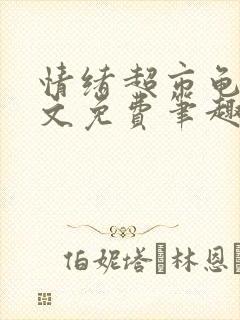 情绪超市龟
文免费笔趣
伯妮塔·林恩